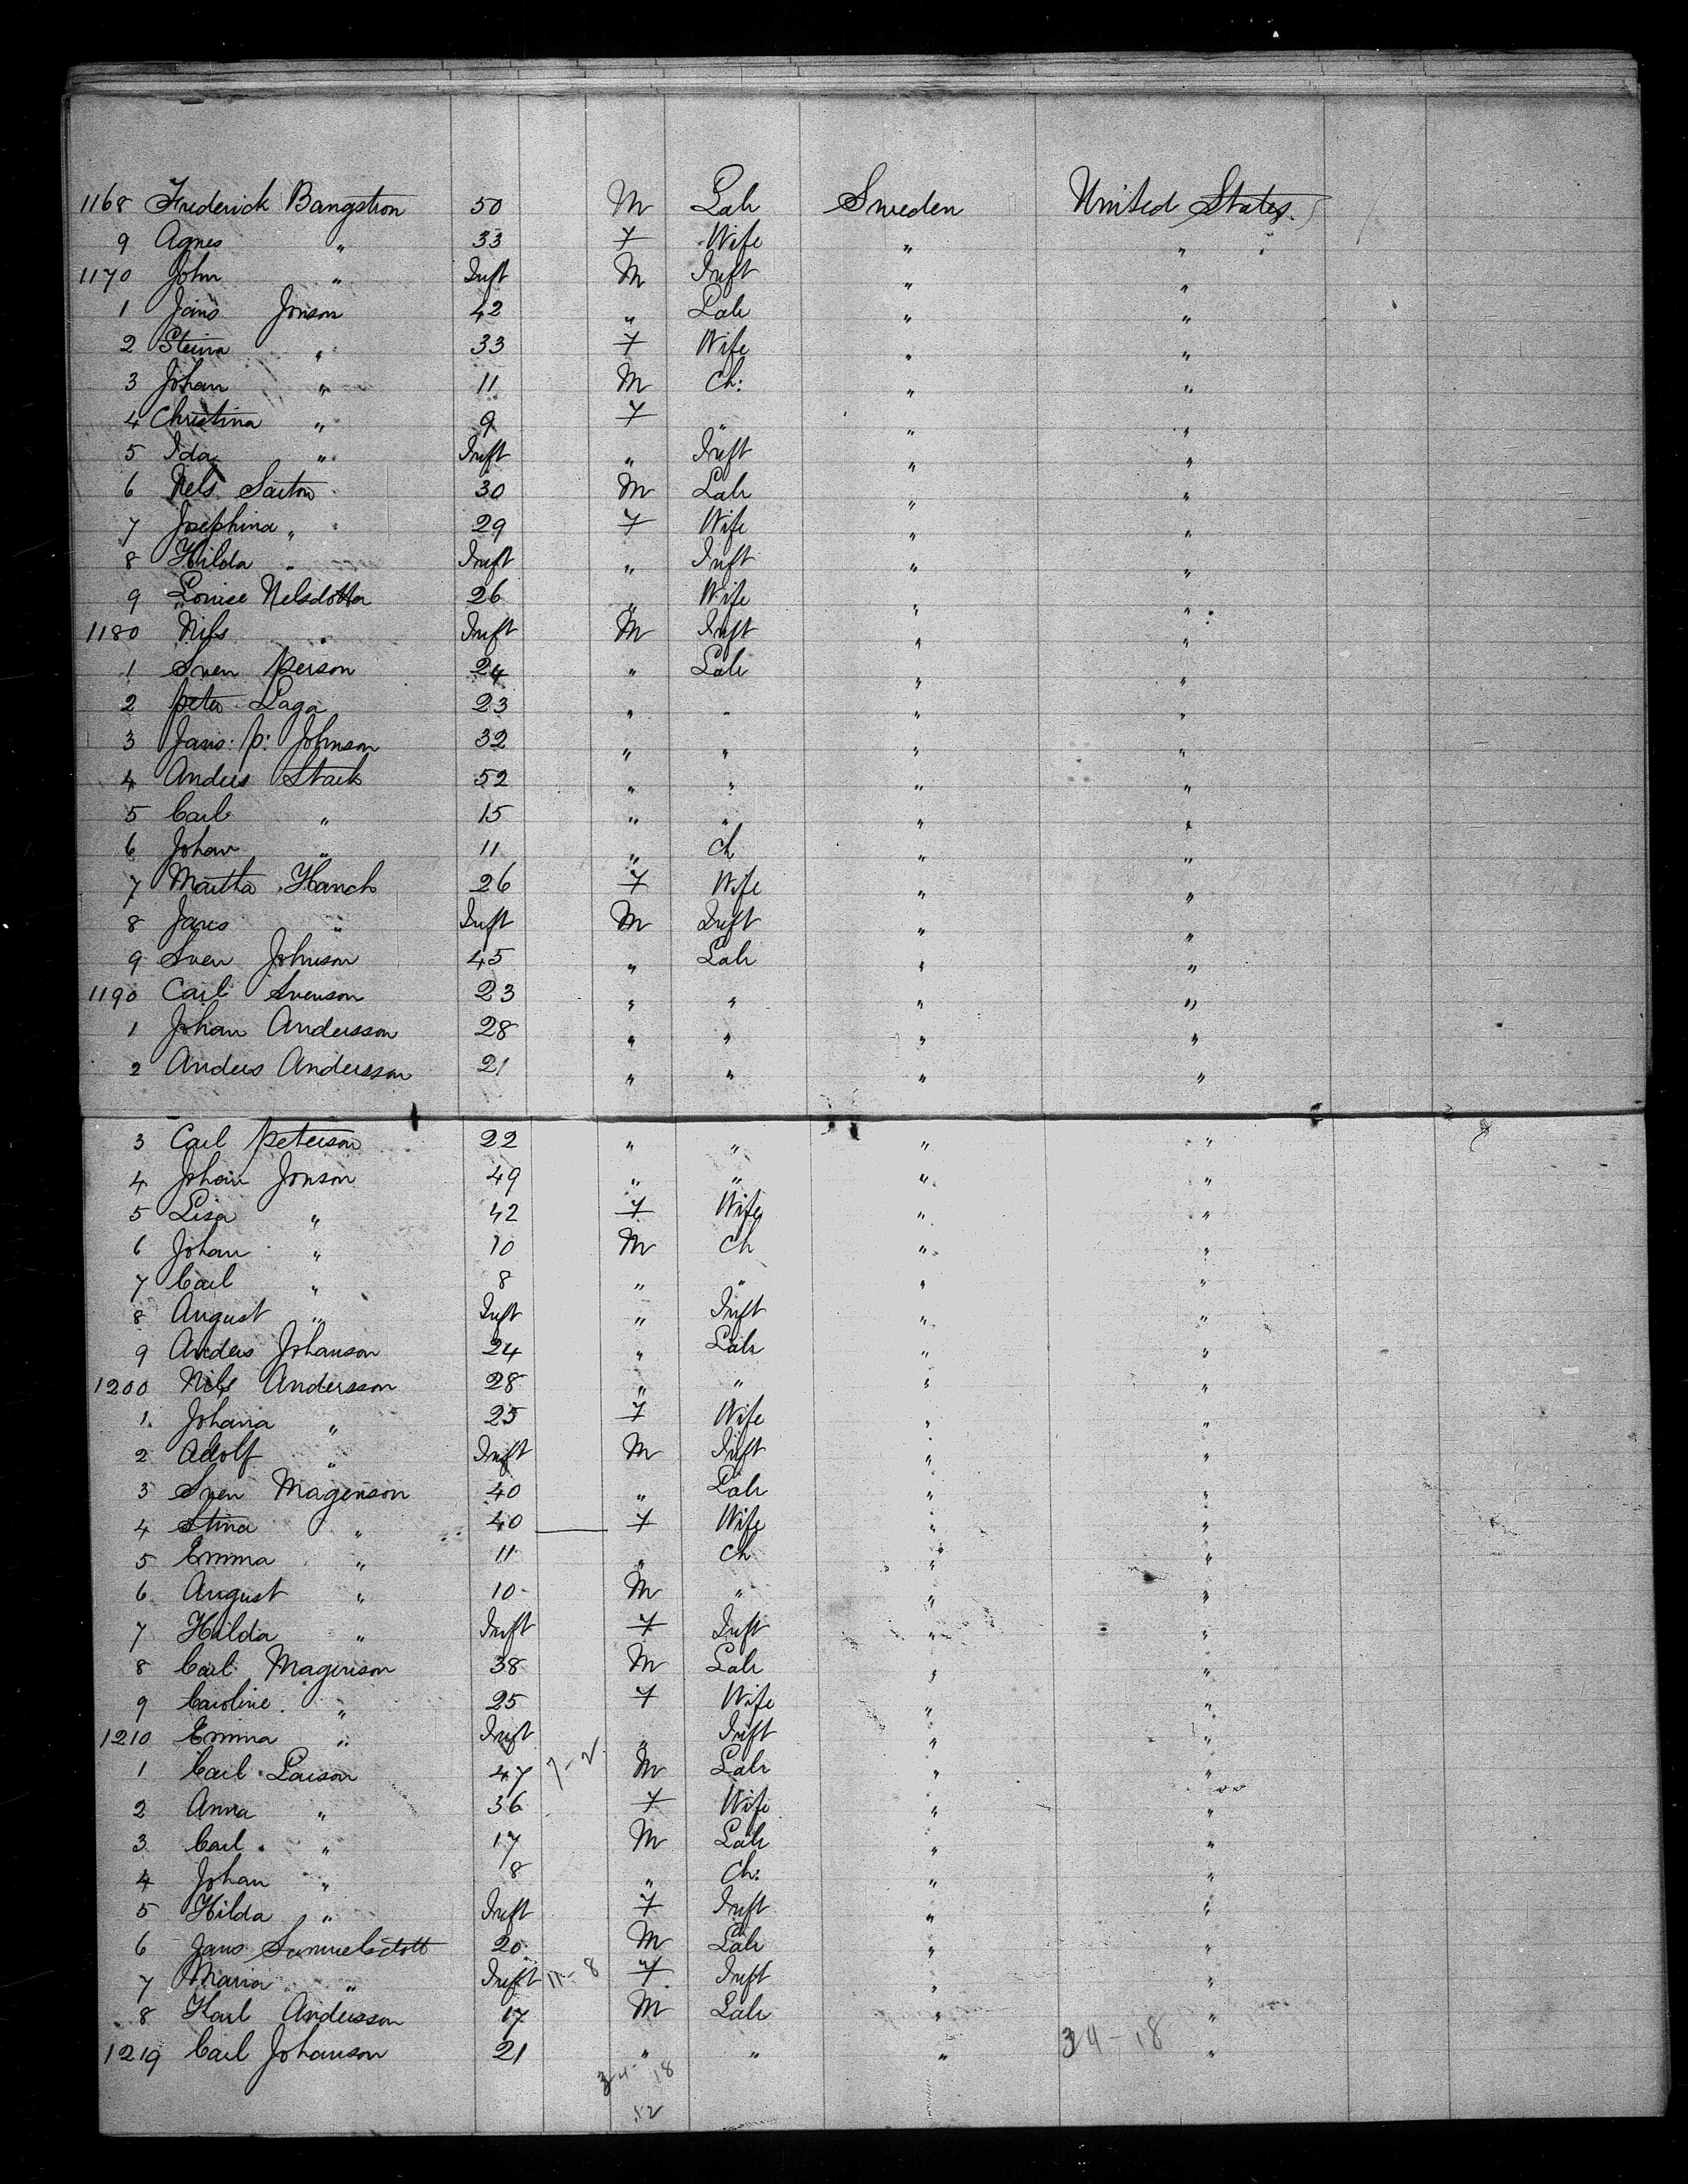 1168 Frederick Bangstron 50 M Lab Sweden United States.
9 Agnes " 33 F Wife " "
1170 John " Inft M Inft " "
1 Jans Jonson 42 " Lab " "
2 Steina " 33 F Wife " "
3 Johan " 11 M Ch: " "
4 Christina " 9 F " " "
5 Ida " Inft " Inft " "
6 Nels Saiton 30 M Lab " "
7 Josephina " 29 F Wife " "
8 Hilda " Inft " Inft " "
9 Louise Nelsdotter 26 " Wife " "
1180 Nils " Inft M Inft " "
1 Sven Person 24 " Lab " "
2 Peter Laga 23 " " " "
3 Jans: P: Johnson 32 " " " "
4 Anders Stark 52 " " " "
5 Carl " 15 " " " "
6 Johan " 11 " Ch " "
7 Martha Hanch 26 F Wife " "
8 Jans " Inft M Inft " "
9 Sven Johnson 45 " Lab " "
1190 Carl Svenson 23 " " " "
1 Johan Andersson 28 " " " "
2 Anders Andersson 21 " " " "
3 Carl Peterson 22 " " " "
4 Johan Jonson 49 " " " "
5 Lisa " 42 F Wife " "
6 Johan " 10 M Ch " "
7 Carl " 8 " " " "
8 August " Inft " Inft " "
9 Anders Johanson 24 " Lab " "
1200 Nils Andersson 28 " " " "
1. Johana " 25 F Wife " "
2 Adolf " Inft M Inft " "
3 Sven Magenson 40 " Lab " "
4 Stina " 40 F Wife " "
5 Emma " 11 " Ch " "
6 August " 10 M " " "
7 Hilda " Inft F Inft " "
8 Carl Magenson 38 M Lab " "
9 Caroline " 25 F Wife " "
1210 Emma " Inft " Inft " "
1 Carl Larson 47 M Lab " "
2 Anna " 36 F Wife " "
3 Carl " 17 M Lab " "
4 Johan " 8 " Ch: " "
5 Hilda " Inft F Inft " "
6 Jans Samuelsdott 20 M Lab " "
7 Maria " Inft 11-8 F Inft " "
8 Karl Andersson 17 M Lab " "
1219 Carl Johanson 21 " " " 34-18 "
34 18
52